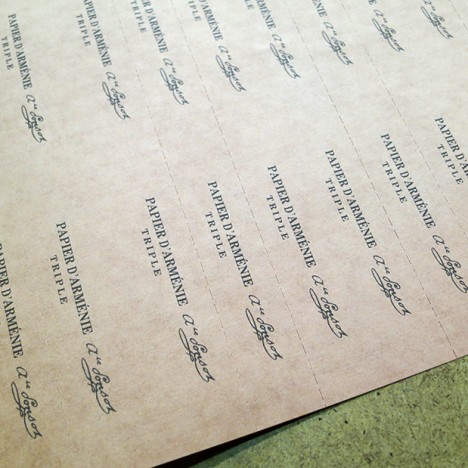 PAPIER D'ARMÉNIE
TRIPLE
Ponsot
PAPIER D'ARMÉNIE
TRIPLE
Ponsot
PAPIER D'ARMÉNIE
TRIPLE
Ponsot
D'ARMÉNIE
TRIPLE
Ponsot
Ponsot
Ponsot
PAPIER D'ARMÉNIE
Ponsot
PAPIER D'ARMÉNIE
TRIPLE
Ponsot
PAPIER D'ARMÉNIE
TRIPLE
Ponsot
PAPIER D'ARMÉNIE
TRIPLE
Ponsot
PAPIER D'ARMÉNIE
TRIPLE
Ponsot
PAPIER D'ARMÉNIE
TRIPLE
Ponsot
PAPIER D'ARMÉNIE
TRIPLE
Ponsot
PAPIER
TRIPLE